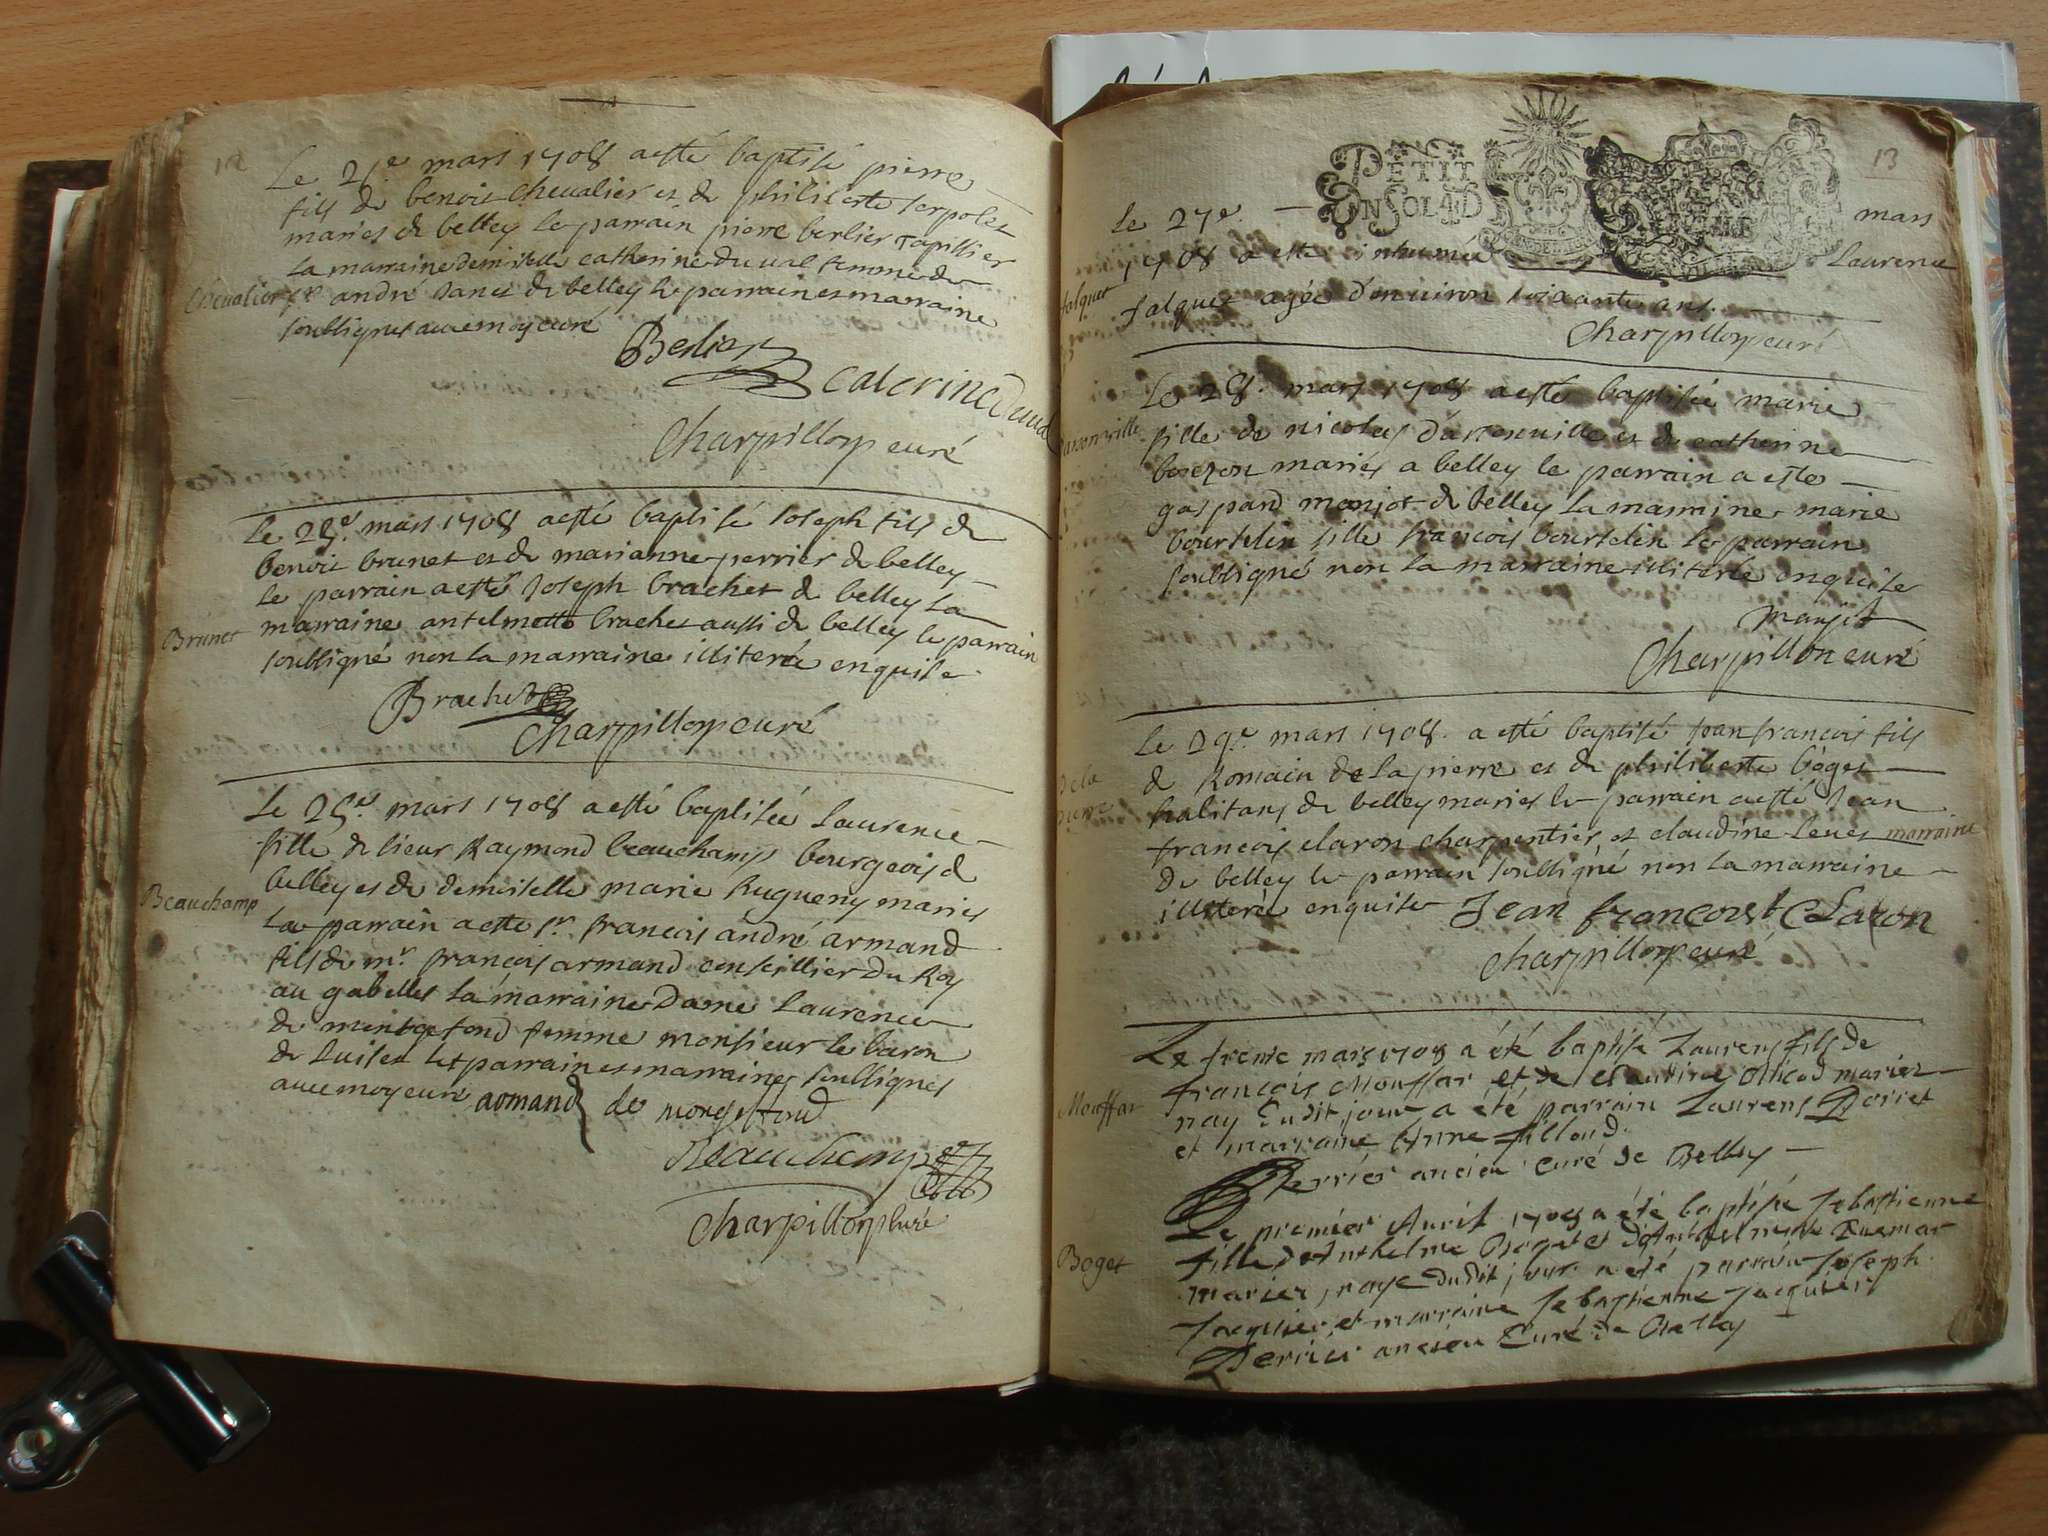 12
Le 21e mars 1708 a esté baptisé pierre
fils de benoit chevalier et de philiberte serpolet
mariés de belley le parrain pierre berlier tapissier
la marraine demiselle catherine duval femme de
Chevalier
sr andré de belley le parrain et marraine
soubsignes avec moy curé
Berlier
Caterine duval
Charpillon curé
Le 25e mars 1708 a esté baptisé Joseph fils de
benoit brunet et de marianne perrier de belley
le parrain a esté Joseph brachet de belley la
Brunet
marraine antelmette brachet aussi de belley le parrain
soubsigné non la marraine illiterée enquise
Brachet
Charpillon curé
Le 25e mars 1708 a esté baptisée Laurence
fille de sieur Raymond beauchamp bourgeois de
belley et de demiselle marie hugueny mariés
Beauchamp
Le parrain a esté sr francois andré armand
fils de mr francois armand conseillier du Roy
au gabelles la marraine Dame Laurence
de femme monsieur le baron
de les parrain et marraine soubsignes
avec moy curé armand de
Beauchamp
Charpillon Curé
13
PETIT
EN SOL 4 D
Le 27e mars
1708 a esté inhumée Laurence
falquet
falquet agée d'environ soixante ans
Charpillon curé
Le 28e mars 1708 a esté baptisée marie
fille de nicolas et de catherine
mariés a belley le parrain a esté
gaspard de belley la marraine marie
bourdelin fille francois bourdelin le parrain
soubsigné non la marraine illiterée enquise
Charpillon curé
Le 29e mars 1708 a esté baptisé Jean francois fils
de la
de Romain de la pierre et de philiberte boget
pierre
habitans de belley mariés le parrain a esté Jean
francois claron charpentier et claudine marraine
de belley le parrain soubsigné non la marraine
illiterée enquise Jean francois Claron
Charpillon curé
Le trente mars 1708 a été baptisé Laurens fils de
francois Mouffar et de claudine mariez
Mouffar
nay dudit jour a été parrain Laurens
et marraine Anne
Perrier ancien curé de Belley
Le premier Avril 1708 a été baptisée Sebastienne
fille d'Anthelme Boget et d'
Boget
mariez, naye dudit jour a été parrain Joseph
Jacquier et marraine Sebastienne Jacquier
Perrier ancien Curé de Belley